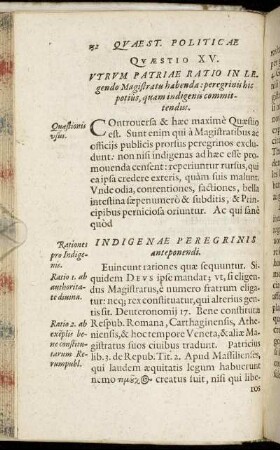 82 QVAEST. POLITICAE
QVÆSTIO XV.
VTRVM PATRIAE RATIO IN LE-
gendo Magistratu habenda: peregrinis hic
potiùs, quam indigenis commit-
tendus.
Quæstionis
vsus.
COntrouersa & hæc maximè Quæstio
est. Sunt enim qui à Magistratibus ac
officijs publicis prorsus peregrinos exclu-
dunt: non nisi indigenas ad hæc esse pro-
mouenda censent: reperiuntur rursus, qui
ea ipsa credere exteris, quàm suis malunt.
Vnde odia, contentiones, factiones, bella
intestina sæpenumerò & subditis, & Prin-
cipibus perniciosa oriuntur. Ac qui sanè
quòd
INDIGENAE PEREGRINIS
anteponendi.
Rationes
pro Indige-
nis.
Ratio 1. ab
authorita-
te diuina.
Ratio 2. ab
exẽplis be-
ne constitu-
tarum Re-
rumpubl.
Euincunt rationes quæ sequuntur. Si-
quidem DEVS ipse mandat; vt, si eligen-
dus Magistratus, è numero fratrum eliga-
tur: neq; rex constituatur, qui alterius gen-
tis sit. Deuteronomij 17. Bene constitutæ
Respub. Romana, Carthaginensis, Athe-
niensis, & hoc tempore Veneta, & aliæ Ma-
gistratus suos ciuibus tradunt. Patricius
lib. 3. de Repub. Tit. 2. Apud Massilienses,
laudem æquitatis legum habuerunt
nemo creatus fuit, nisi qui libe-
ros